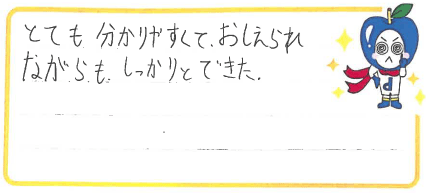 とても分かりやすくて、おしえられ
ながらも、しっかりとできた。